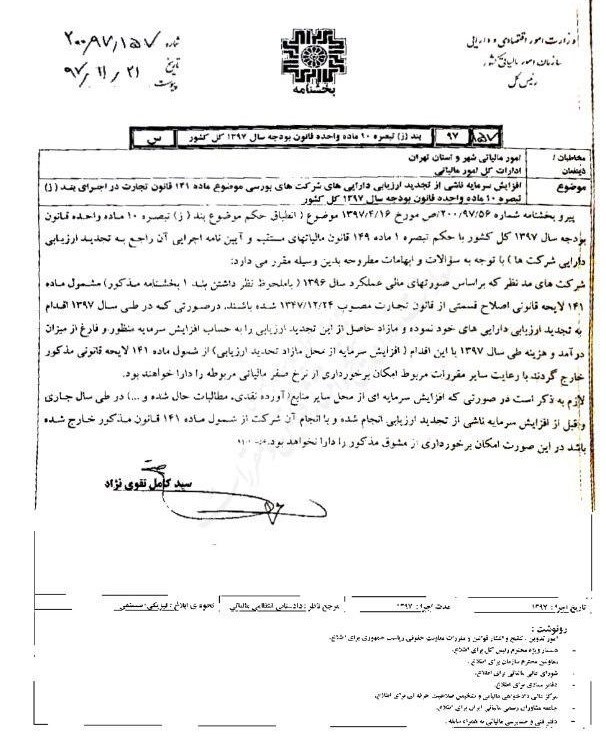 وزارت امور اقتصادی و دارایی
سازمان امور مالیاتی کشور
رئیس کل
شماره ۲۰۰/۹۷/۱۵۷
تاریخ ۹۷/۱۱/۲۱
پیوست
بخشنامه
۱۵۷ ۹۷ بند (ز) تبصره ۱۰ ماده واحده قانون بودجه سال ۱۳۹۷ کل کشور س
مخاطبان / ذینفعان
امور مالیاتی شهر و استان تهران
ادارات کل امور مالیاتی
موضوع
افزایش سرمایه ناشی از تجدید ارزیابی دارایی های شرکت های بورسی موضوع ماده ۱۴۱ قانون تجارت در اجرای بند (ز)
تبصره ۱۰ ماده واحده قانون بودجه سال ۱۳۹۷ کل کشور
پیرو بخشنامه شماره ۲۰۰/۹۷/۵۶/ص مورخ ۱۳۹۷/۴/۱۶ موضوع ( انطباق حکم موضوع بند ( ز ) تبصره ۱۰ ماده واحده قانون
بودجه سال ۱۳۹۷ کل کشور با حکم تبصره ۱ ماده ۱۴۹ قانون مالیاتهای مستقیم و آیین نامه اجرایی آن راجع به تجدید ارزیابی
دارایی شرکت ها ) با توجه به سؤالات و ابهامات مطروحه بدین وسیله مقرر می دارد:
شرکت های مد نظر که براساس صورتهای مالی عملکرد سال ۱۳۹۶ ( باملحوظ نظر داشتن بند ۱ بخشنامه مذکور) مشمول ماده
۱۴۱ لایحه قانونی اصلاح قسمتی از قانون تجارت مصوب ۱۳۴۷/۱۲/۲۴ شده باشند. درصورتی که در طی سال ۱۳۹۷ اقدام
به تجدید ارزیابی دارایی های خود نموده و مازاد حاصل از این تجدید ارزیابی را به حساب افزایش سرمایه منظور و فارغ از میزان
درآمد و هزینه طی سال ۱۳۹۷ با این اقدام ( افزایش سرمایه از محل مازاد تجدید ارزیابی) از شمول ماده ۱۴۱ لایحه قانونی مذکور
خارج گردند با رعایت سایر مقررات مربوط امکان برخورداری از نرخ صفر مالیاتی مربوطه را دارا خواهند بود.
لازم به ذکر است در صورتی که افزایش سرمایه ای از محل سایر منابع(آورده نقدی، مطالبات حال شده و ...) در طی سال جاری
وقبل از افزایش سرمایه ناشی از تجدید ارزیابی انجام شده و با انجام آن شرکت از شمول ماده ۱۴۱ قانون مذکور خارج شده
باشد در این صورت امکان برخورداری از مشوق مذکور را دارا نخواهد بود.
سید کامل تقوی نژاد
تاریخ اجرا : ۱۳۹۷ مدت اجرا : ۱۳۹۷ مرجع ناظر : دادستانی انتظامی مالیاتی نحوه ی ابلاغ : فیزیکی/سیستمی
رونوشت :
امور تدوین ، تنقیح و انتشار قوانین و مقررات معاونت حقوقی ریاست جمهوری برای اطلاع.
- دستیار ویژه محترم رئیس کل برای اطلاع.
- معاونین محترم سازمان برای اطلاع .
- شورای عالی مالیاتی برای اطلاع.
- دفاتر ستادی برای اطلاع.
- مرکز عالی دادخواهی مالیاتی و تشخیص صلاحیت حرفه ای برای اطلاع.
- جامعه مشاوران رسمی مالیاتی ایران برای اطلاع
- دفتر فنی و حسابرسی مالیاتی به همراه سابقه .